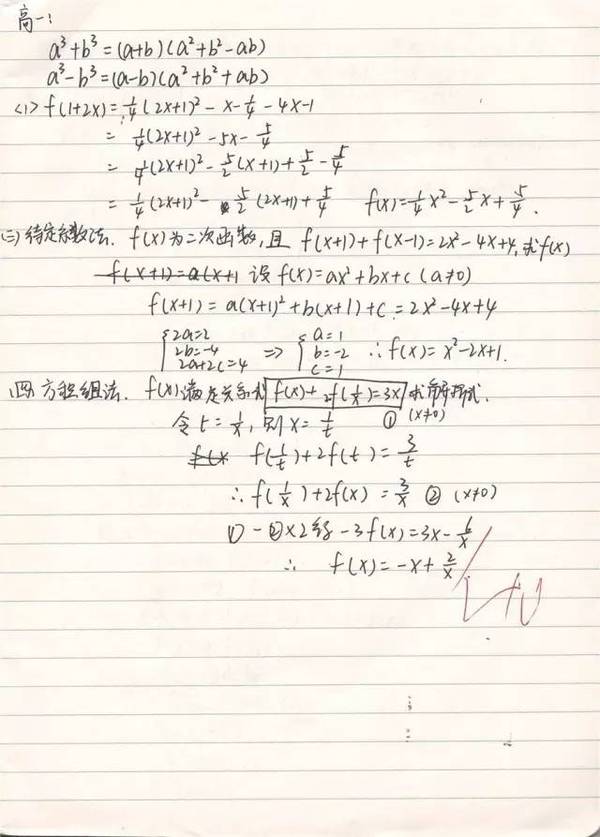 高一:
a³+b³=(a+b)(a²+b²-ab)
a³-b³=(a-b)(a²+b²+ab)
<1> f(1+2x)=1/4(2x+1)²-x-1/4-4x-1
= 1/4(2x+1)²-5x-5/4
= 1/4(2x+1)²-5/2(x+1)+5/2-5/4
= 1/4(2x+1)²- 5/2(2x+1)+5/4 f(x)=1/4x²-5/2x+5/4.
(二)待定系数法. f(x)为二次函数,且 f(x+1)+f(x-1)=2x²-4x+4,求f(x)
f(x+1)=a(x+1 设f(x)=ax²+bx+c(a≠0)
f(x+1)=a(x+1)²+b(x+1)+c=2x²-4x+4
{2a=2 2b=-4 2a+2c=4 => {a=1 b=-2 c=1 ∴f(x)=x²-2x+1.
(四)方程组法. f(x)满足关系式 f(x)+2f(1/x)=3x 求解析式.
令t=1/x,则x=1/t ① (x≠0)
f(x f(1/t)+2f(t)=3/t
∴f(1/x)+2f(x)=3/x ② (x≠0)
①-②×2得-3f(x)=3x-6/x
∴ f(x)=-x+2/x